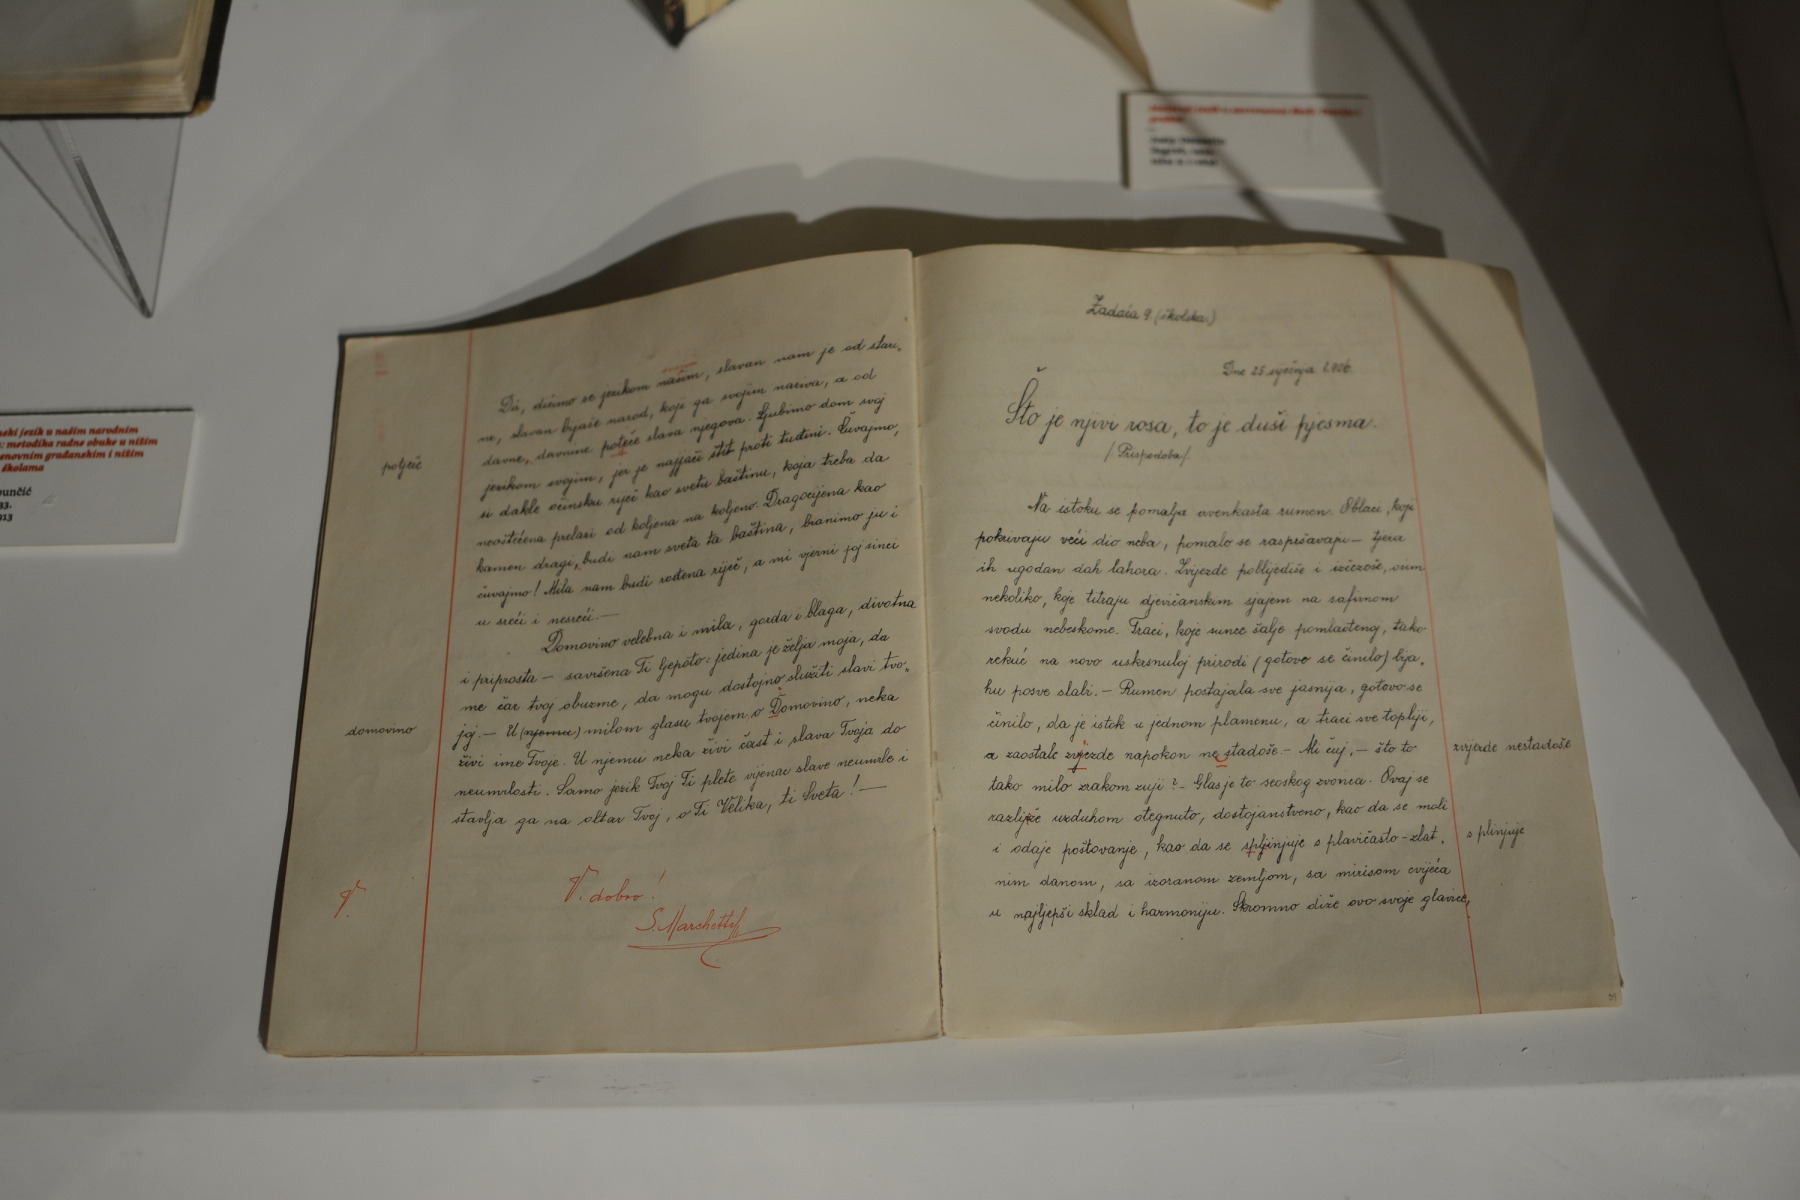 nski jezik u našim narodnim
: metodika radne obuke u nižim
enovnim građanskim i nižim
školama
punčić
33.
913
Da, dičimo se jezikom našim, slavan nam je od stari-
ne, slavan bijaše narod, koji ga svojim naziva, a od
davne, davnine poteče slava njegova. Ljubimo dom svoj
jezikom svojim, jer je najjači štit proti tuđini. Čuvajmo,
si dakle očinsku riječ kao svetu baštinu, koja treba da
neoštećena prelazi od koljena na koljeno. Dragocijena kao
kamen dragi, budi nam sveta ta baština, branimo ju i
čuvajmo! Mila nam budi rođena riječ, a mi vjerni joj sinci
u sreći i nesreći.—
Domovino velebna i mila, gorda i blaga, divotna
i priprosta — savršena Ti ljepoto: jedina je želja moja, da
me čar tvoj obuzme, da mogu dostojno služiti slavi tvo-
joj.— U (njemu) milom glasu tvojem, o Domovino, neka
živi ime Tvoje. U njemu neka živi čast i slava Tvoja do
neumrlosti. Samo jezik Tvoj Ti plete vijenac slave neumrle i
stavlja ga na oltar Tvoj, o Ti Velika, ti Sveta!—
poljeće
domovino
V.
V. dobro!
S. Marchetti
Zadaća 9. (školska.)
Dne 25. siječnja 1906.
Što je njivi rosa, to je duši pjesma.
/Prispodoba/.
Na istoku se pomalja crvenkasta rumen. Oblaci, koji
pokrivaju veći dio neba, pomalo se raspršavaju — tjera
ih ugodan dah lahora. Zvijezde poblijediše i iščezoše, osim
nekoliko, koje titraju djevičanskim sjajem na safirnom
svodu nebeskome. Traci, koje sunce šalje pomlađenoj, tako
rekuć na novo uskrsnuloj prirodi (gotovo se činilo) bja-
hu posve slabi.— Rumen postajala sve jasnija, gotovo se
činilo, da je istok u jednom plamenu, a traci sve topliji,
a zaostale zvjezde napokon ne stadoše.— Ali čuj,— što to
tako milo zrakom zuji?— Glas je to seoskog zvonca. Ovaj se
razliježe uzduhom otegnuto, dostojanstveno, kao da se moli
i odaje poštovanje, kao da se spljinjuje s plavičasto-zlat-
nim danom, sa izoranom zemljom, sa mirisom cvijeća
u najljepši sklad i harmoniju. Skromno diže ovo svoje glavice,
zvijezde nestadoše
splinjuje